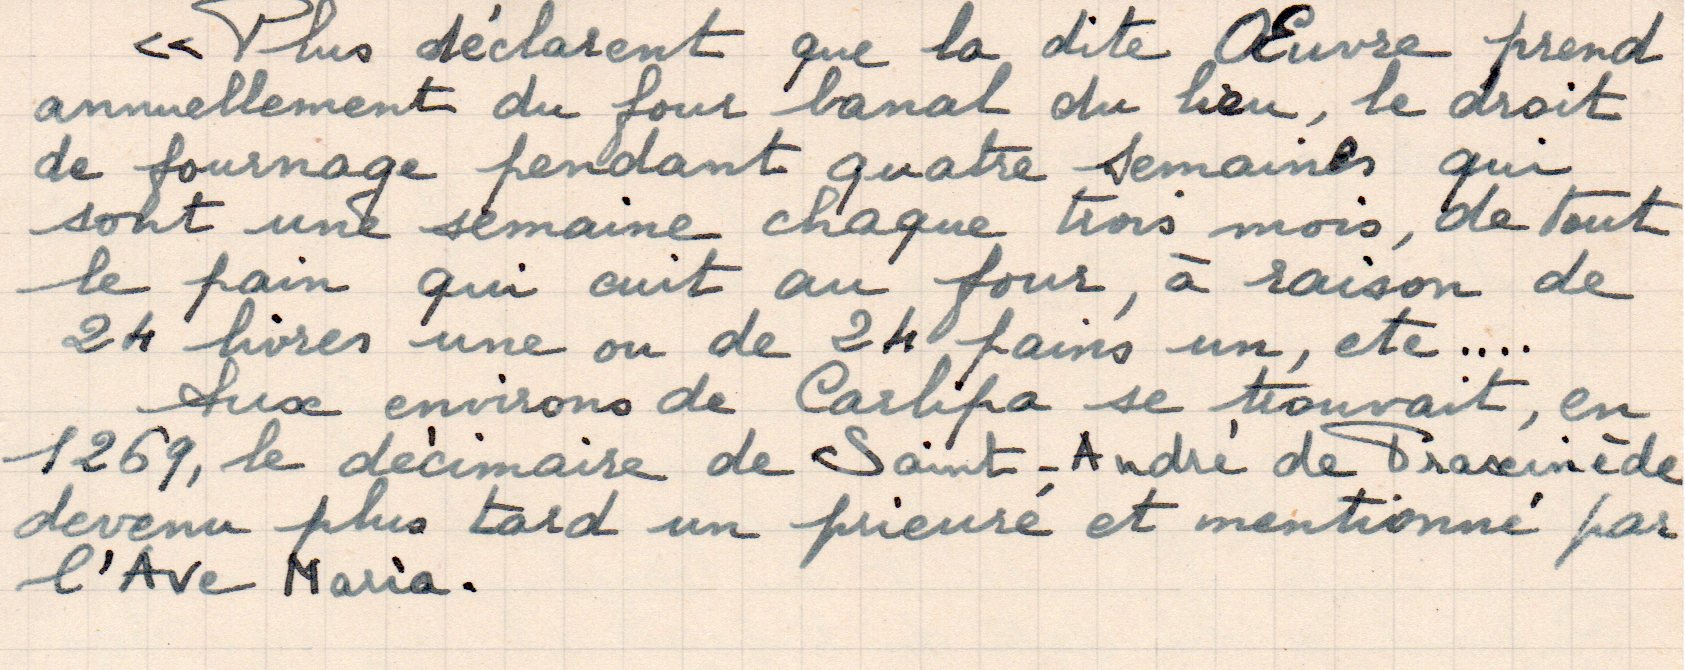 << Plus déclarent que la dite Œuvre prend
annuellement du four banal du lieu, le droit
de fournage pendant quatre semaines qui
sont une semaine chaque trois mois, de tout
le pain qui cuit au four, à raison de
24 livres une ou de 24 pains un, etc....
Aux environs de Carlipa se trouvait, en
1269, le décimaire de Saint-André de Praxinède
devenu plus tard un prieuré et mentionné par
l'Ave Maria.